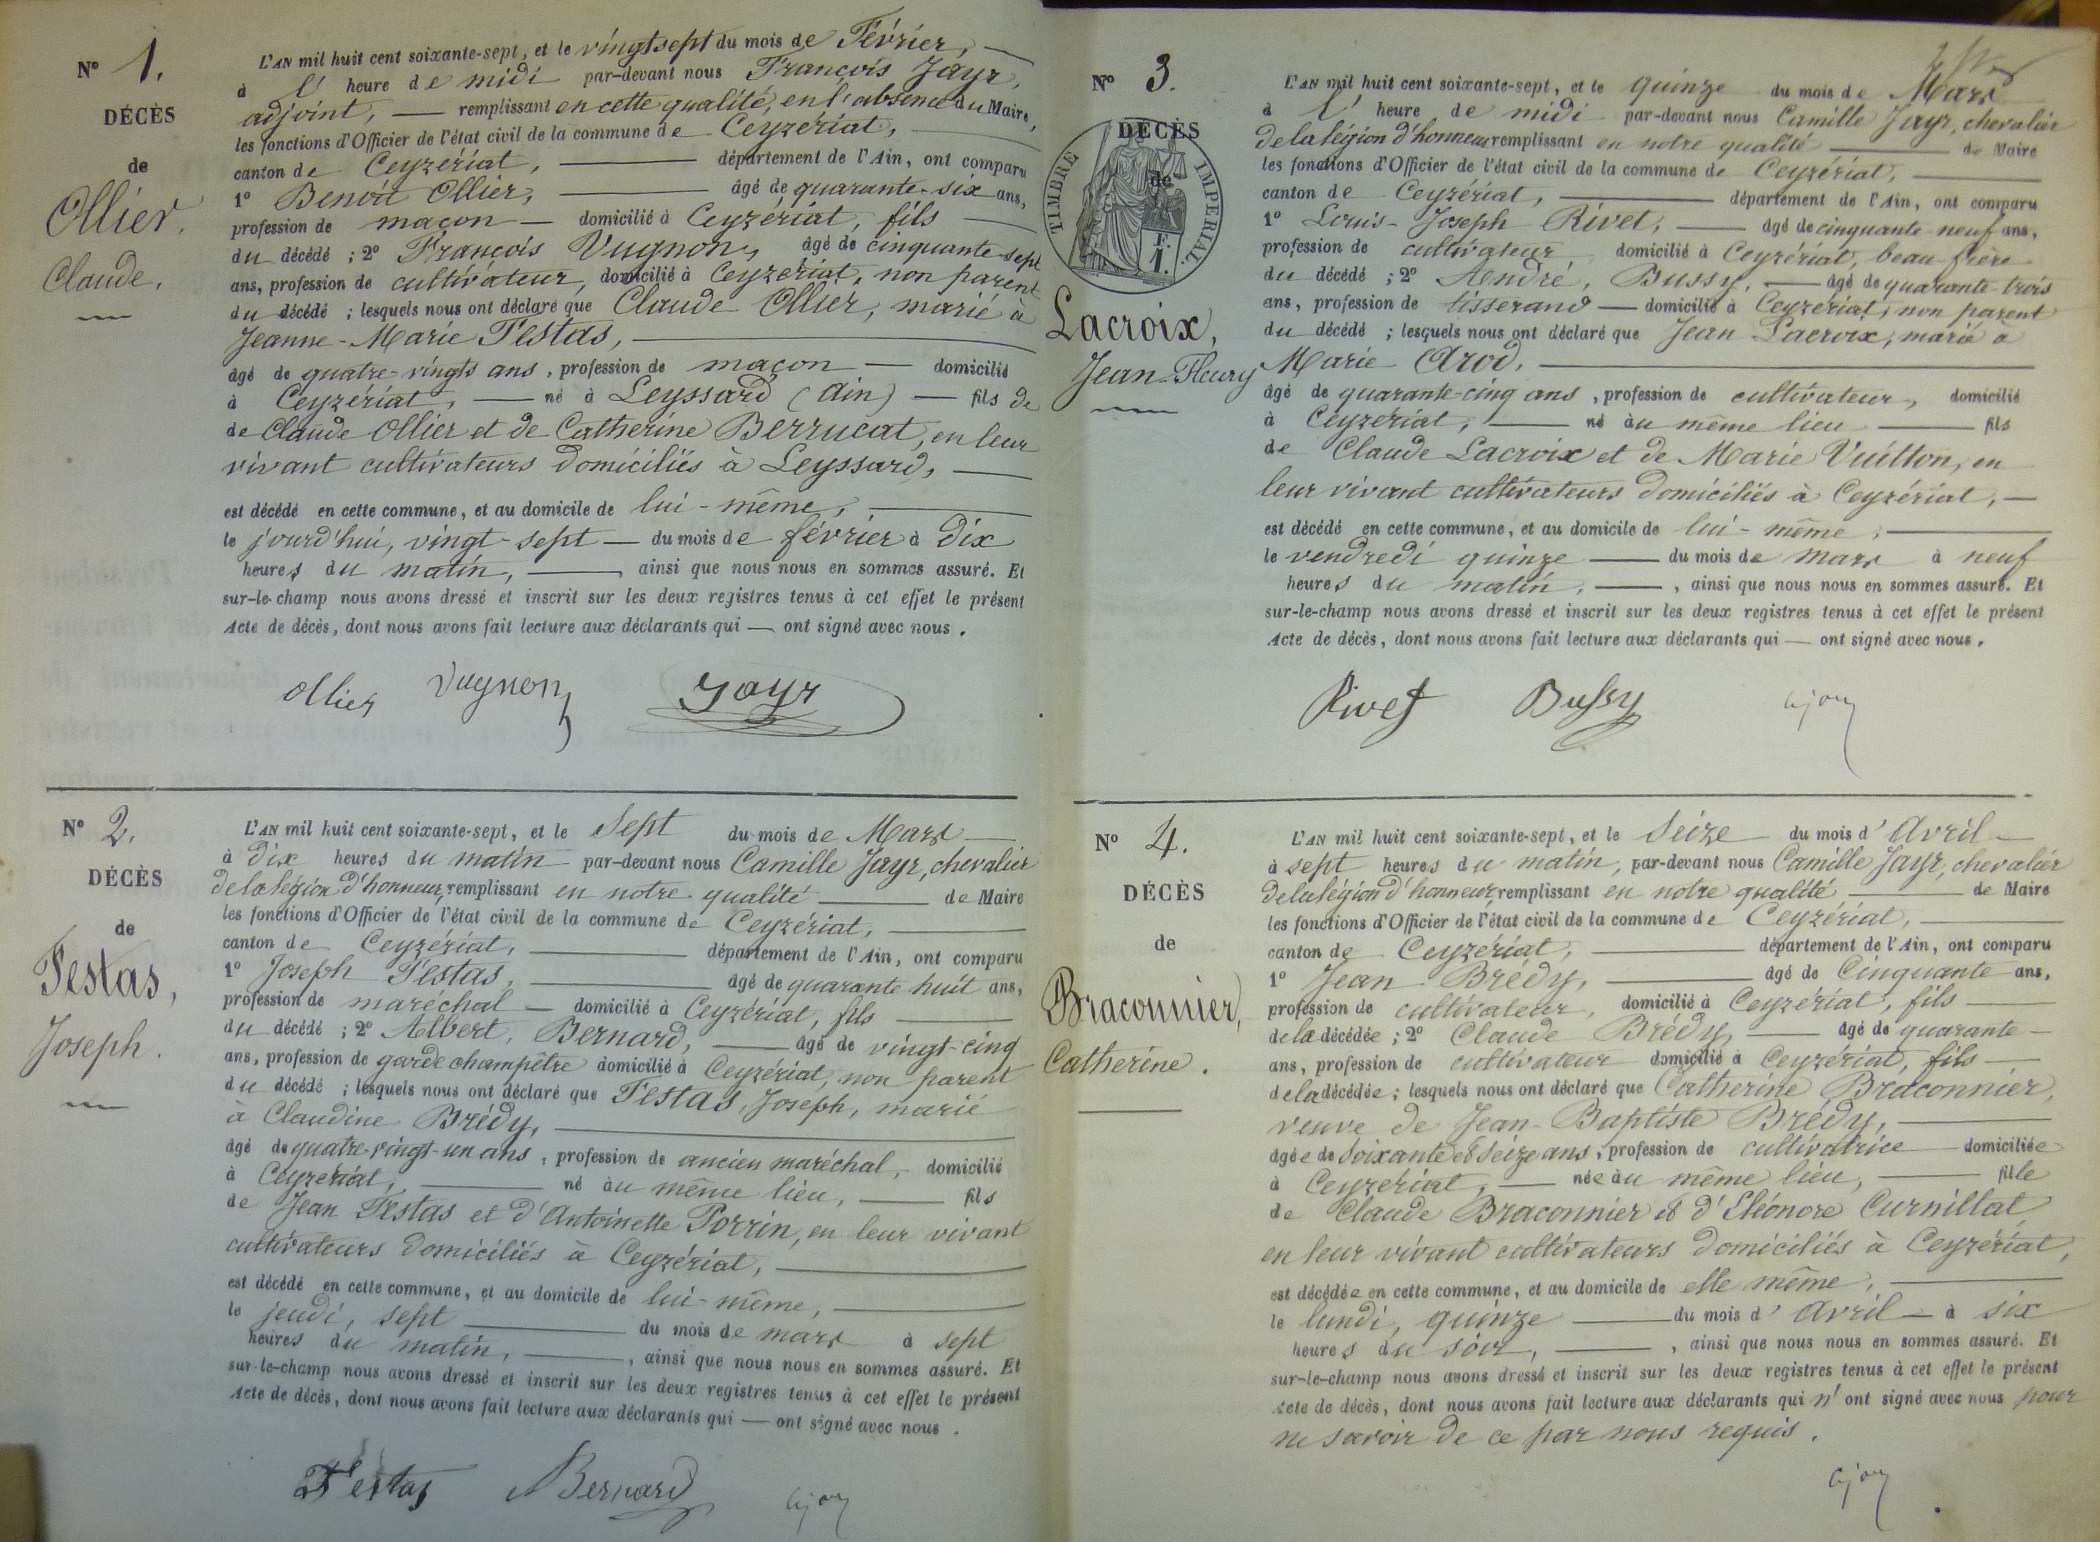 N° 1.
DÉCÈS
de
Ollier.
Claude.
L'AN mil huit cent soixante-sept, et le vingt sept du mois de Février,
à l' heure de midi par-devant nous François Jayr,
adjoint, remplissant en cette qualité, en l'absence du Maire,
les fonctions d'Officier de l'état civil de la commune de Ceyzériat,
canton de Ceyzériat, département de l'Ain, ont comparu
1° Benoit Ollier, âgé de quarante-six ans,
profession de maçon domicilié à Ceyzériat, fils
du décédé ; 2° François Vugnon, âgé de cinquante-sept
ans, profession de cultivateur, domicilié à Ceyzériat, non parent
du décédé ; lesquels nous ont déclaré que Claude Ollier, marié à
Jeanne-Marie Testas,
âgé de quatre-vingts ans, profession de maçon domicilié
à Ceyzériat, né à Leyssard (Ain) fils de
de Claude Ollier et de Catherine Berrucat, en leur
vivant cultivateurs domiciliés à Leyssard,
est décédé en cette commune, et au domicile de lui-même,
le jourd'hui, vingt-sept du mois de février à dix
heures du matin, ainsi que nous nous en sommes assuré. Et
sur-le-champ nous avons dressé et inscrit sur les deux registres tenus à cet effet le présent
Acte de décès, dont nous avons fait lecture aux déclarants qui — ont signé avec nous.
Ollier Vugnon Jayr
N° 2.
DÉCÈS
de
Testas,
Joseph.
L'AN mil huit cent soixante-sept, et le Sept du mois de Mars
à dix heures du matin par-devant nous Camille Jayr, chevalier
de la légion d'honneur, remplissant en notre qualité de Maire
les fonctions d'Officier de l'état civil de la commune de Ceyzériat,
canton de Ceyzériat, département de l'Ain, ont comparu
1° Joseph Testas, âgé de quarante huit ans,
profession de maréchal domicilié à Ceyzériat, fils
du décédé ; 2° Albert, Bernard, âgé de vingt-cinq
ans, profession de garde champêtre domicilié à Ceyzériat, non parent
du décédé ; lesquels nous ont déclaré que Testas, Joseph, marié
à Claudine Brédy,
âgé de quatre-vingt-un ans, profession de ancien maréchal, domicilié
à Ceyzériat, né au même lieu, fils
de Jean Testas et d'Antoinette Porrin, en leur vivant
cultivateurs domiciliés à Ceyzériat,
est décédé en cette commune, et au domicile de lui-même,
le jeudi, sept du mois de mars à sept
heures du matin, ainsi que nous nous en sommes assuré. Et
sur-le-champ nous avons dressé et inscrit sur les deux registres tenus à cet effet le présent
Acte de décès, dont nous avons fait lecture aux déclarants qui — ont signé avec nous.
Testas Bernard
N° 3.
DÉCÈS
de
TIMBRE IMPERIAL
F. 1.
Lacroix,
Jean-Fleury
L'AN mil huit cent soixante-sept, et le quinze du mois de Mars
à l' heure de midi par-devant nous Camille Jayr, chevalier
de la légion d'honneur remplissant en notre qualité de Maire
les fonctions d'Officier de l'état civil de la commune de Ceyzériat,
canton de Ceyzériat, département de l'Ain, ont comparu
1° Louis-Joseph Rivet, âgé de cinquante-neuf ans,
profession de cultivateur, domicilié à Ceyzériat, beau-frère
du décédé ; 2° André, Bussy, âgé de quarante-trois
ans, profession de tisserand domicilié à Ceyzériat, non parent
du décédé ; lesquels nous ont déclaré que Jean Lacroix, marié à
Marie Arod,
âgé de quarante-cinq ans, profession de cultivateur, domicilié
à Ceyzériat, né au même lieu fils
de Claude Lacroix et de Marie Vuitton, en
leur vivant cultivateurs domiciliés à Ceyzériat,
est décédé en cette commune, et au domicile de lui-même,
le vendredi quinze du mois de mars à neuf
heures du matin, ainsi que nous nous en sommes assuré. Et
sur-le-champ nous avons dressé et inscrit sur les deux registres tenus à cet effet le présent
Acte de décès, dont nous avons fait lecture aux déclarants qui — ont signé avec nous.
Rivet Bussy
N° 4.
DÉCÈS
de
Braconnier,
Catherine.
L'AN mil huit cent soixante-sept, et le Seize du mois d'Avril
à sept heures du matin, par-devant nous Camille Jayr, chevalier
de la légion d'honneur remplissant en notre qualité de Maire
les fonctions d'Officier de l'état civil de la commune de Ceyzériat,
canton de Ceyzériat, département de l'Ain, ont comparu
1° Jean Brédy, âgé de Cinquante ans,
profession de cultivateur, domicilié à Ceyzériat, fils
de la décédée ; 2° Claude Brédy, âgé de quarante
ans, profession de cultivateur domicilié à Ceyzériat, fils
de la décédée ; lesquels nous ont déclaré que Catherine Braconnier,
veuve de Jean-Baptiste Brédy,
âgée de Soixante et Seize ans, profession de cultivatrice domiciliée
à Ceyzériat, née au même lieu, fille
de Claude Braconnier et d'Eléonore Curnillat
en leur vivant cultivateurs domiciliés à Ceyzériat,
est décédée en cette commune, et au domicile de elle même,
le lundi, quinze du mois d'Avril à six
heures du soir, ainsi que nous nous en sommes assuré. Et
sur-le-champ nous avons dressé et inscrit sur les deux registres tenus à cet effet le présent
Acte de décès, dont nous avons fait lecture aux déclarants qui n'ont signé avec nous pour
ne savoir de ce par nous requis.